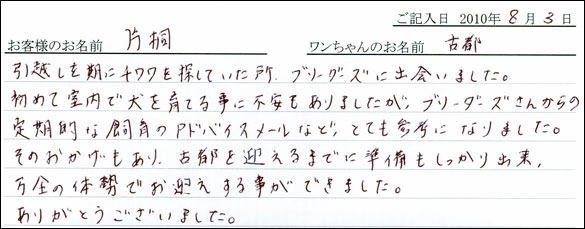 ご記入日 2010年 8月 3日
お客様のお名前 片桐 ワンちゃんのお名前 古都
引越しを期にチワワを探していた所、ブリーダーズに出会いました。
初めて室内で犬を育てる事に不安もありましたが、ブリーダーズさんからの
定期的な飼育のアドバイスメールなど、とても参考になりました。
そのおかげもあり、古都を迎えるまでに準備もしっかり出来、
万全の体勢でお迎えする事ができました。
ありがとうございました。